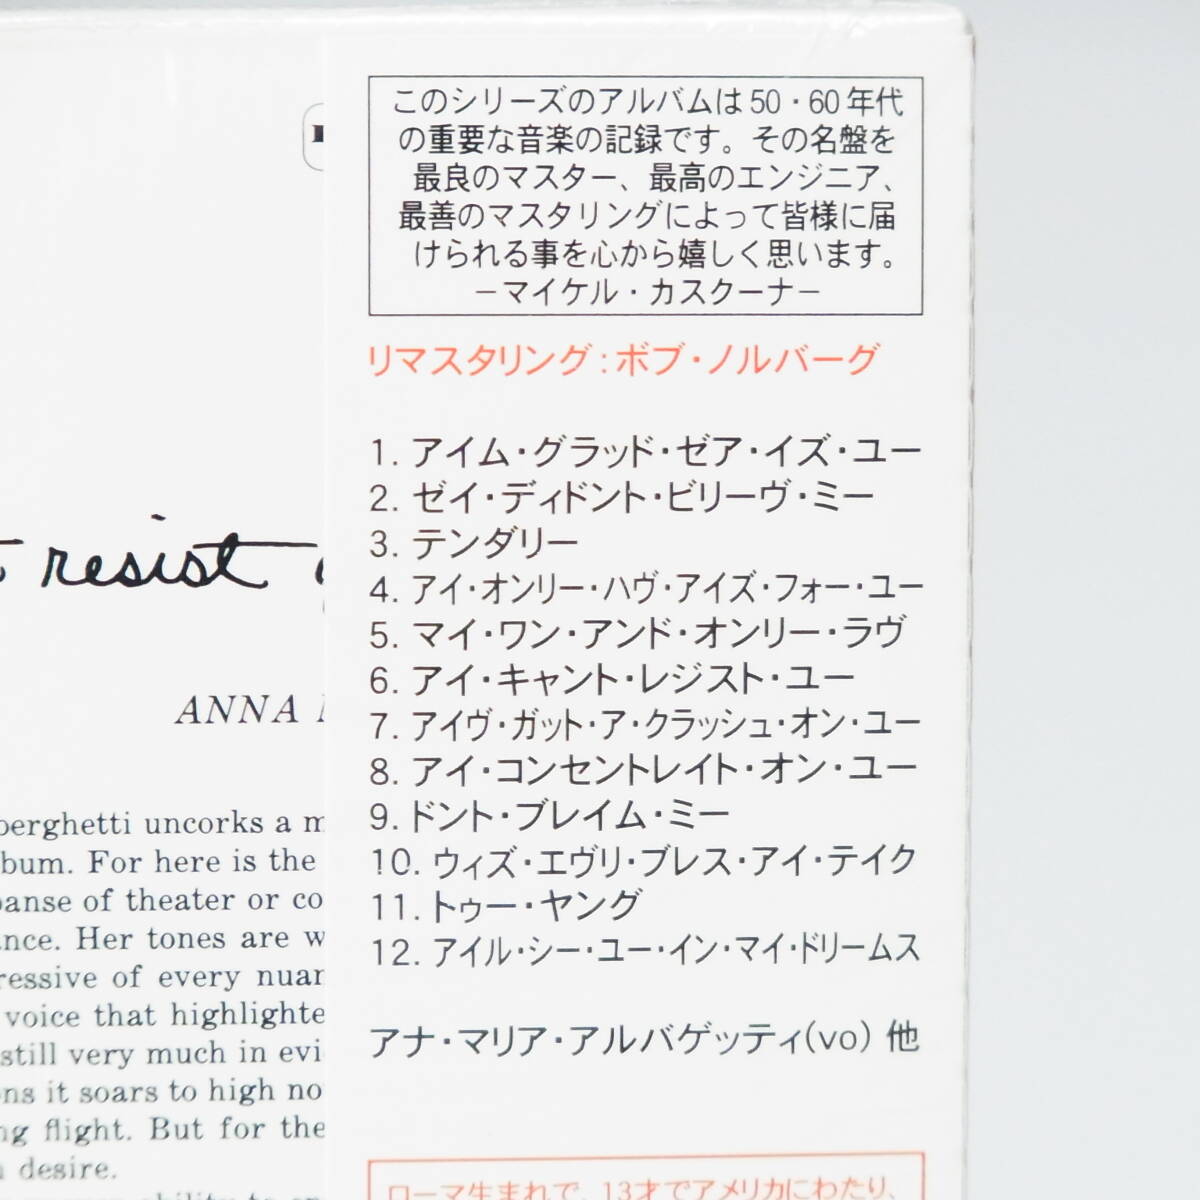 このシリーズのアルバムは50・60年代
の重要な音楽の記録です。その名盤を
最良のマスター、最高のエンジニア、
最善のマスタリングによって皆様に届
けられる事を心から嬉しく思います。
−マイケル・カスクーナ−
リマスタリング:ボブ・ノルバーグ
1. アイム・グラッド・ゼア・イズ・ユー
2. ゼイ・ディドント・ビリーヴ・ミー
3. テンダリー
4. アイ・オンリー・ハヴ・アイズ・フォー・ユー
5. マイ・ワン・アンド・オンリー・ラヴ
6. アイ・キャント・レジスト・ユー
7. アイヴ・ガット・ア・クラッシュ・オン・ユー
8. アイ・コンセントレイト・オン・ユー
9. ドント・ブレイム・ミー
10. ウィズ・エヴリ・ブレス・アイ・テイク
11. トゥー・ヤング
12. アイル・シー・ユー・イン・マイ・ドリームス
アナ・マリア・アルバゲッティ(vo) 他
ローマ生まれで、13才でアメリカにわたり、
resist
ANNA
berghetti uncorks a m
bum. For here is the
panse of theater or co
ance. Her tones are w
ressive of every nuan
voice that highlighte
still very much in evi
ons it soars to high no
ng flight. But for the
desire.